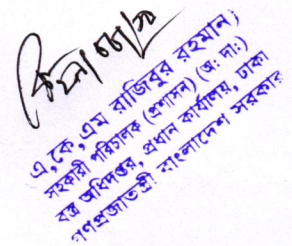 এ,কে,এম রাজিবুর রহমান)
সহকারী পরিচালক (প্রশাসন) (অঃ দাঃ)
বস্ত্র অধিদপ্তর, প্রধান কার্যালয়, ঢাকা
গণপ্রজাতন্ত্রী বাংলাদেশ সরকার